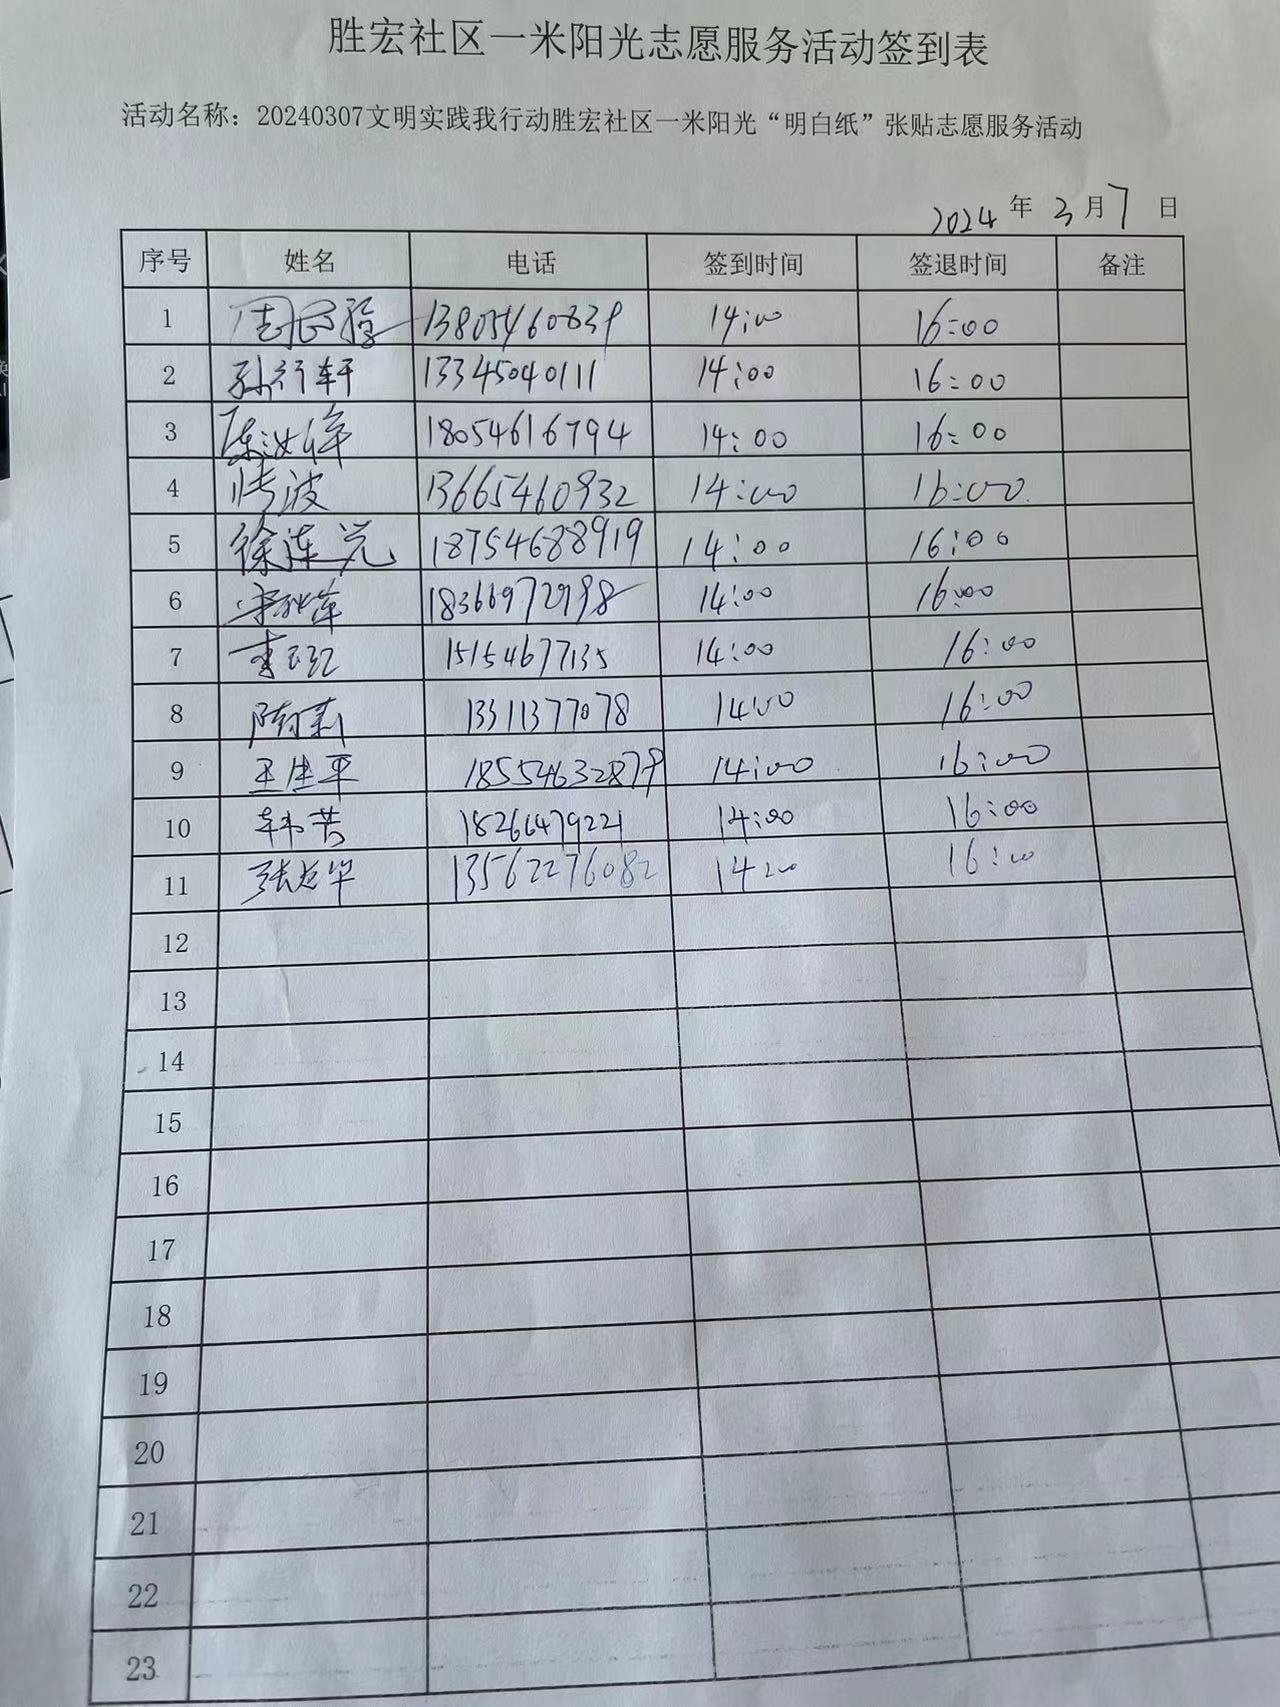 胜宏社区一米阳光志愿服务活动签到表
活动名称：20240307文明实践我行动胜宏社区一米阳光“明白纸”张贴志愿服务活动
2024 年 3 月 7 日
序号 姓名 电话 签到时间 签退时间 备注
1 13805460839 14:00 16:00
2 孙行轩 13345040111 14:00 16:00
3 陈汝 18054616794 14:00 16:00
4 波 13665460932 14:00 16:00
5 徐莲 18754688919 14:00 16:00
6 宋秋萍 18366972998 14:00 16:00
7 李 15154677135 14:00 16:00
8 隋莉 13311377078 14:00 16:00
9 王生平 18554632879 14:00 16:00
10 韩芳 18266479221 14:00 16:00
11 张 华 13562276082 14:00 16:00
12
13
14
15
16
17
18
19
20
21
22
23